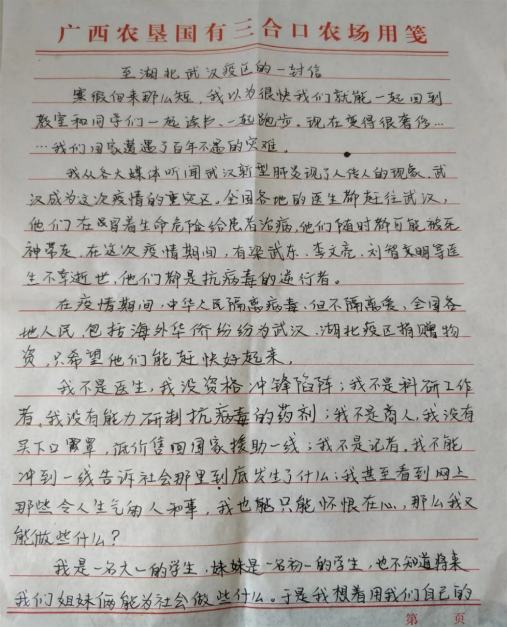 广西农垦国有三合口农场用笺
至湖北武汉疫区的一封信
寒假何来那么短，我以为很快我们就能一起回到
教室和同学们一起读书、一起跑步。现在变得很奢侈…
…我们国家遭遇了百年不遇的灾难。
我从各大媒体听闻武汉新型肺炎现了人传人的现象，武
汉成为这次疫情的重灾区。全国各地的医生都赶往武汉，
他们在冒着生命危险给患者治病，他们随时都可能被死
神带走，在这次疫情期间，有梁武东、李文亮、刘智明等医
生不幸逝世，他们都是抗病毒的逆行者。
在疫情期间，中华人民隔离病毒，但不隔离爱，全国各
地人民，包括海外华侨纷纷为武汉、湖北疫区捐赠物
资，只希望他们能赶快好起来，
我不是医生，我没资格冲锋陷阵；我不是科研工作
者，我没有能力研制抗病毒的药剂；我不是商人，我没有
买下口罩，低价售回国家援助一线；我不是记者，我不能
冲到一线告诉社会那里到底发生了什么；我甚至看到网上
那些令人生气的人和事，我也能只能怀恨在心，那么我又
能做些什么？
我是一名大一的学生，妹妹是一名初一的学生，也不知道将来
我们姐妹俩能为社会做些什么。于是我想着用我们自己的
第 页